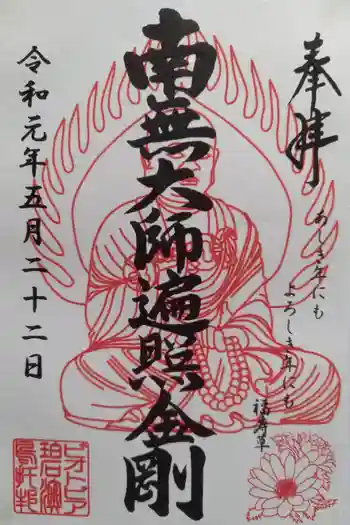 奉拝
あしき年にも
よろしき年にも
福寿草
南無大師遍照金剛
令和元年五月二十二日